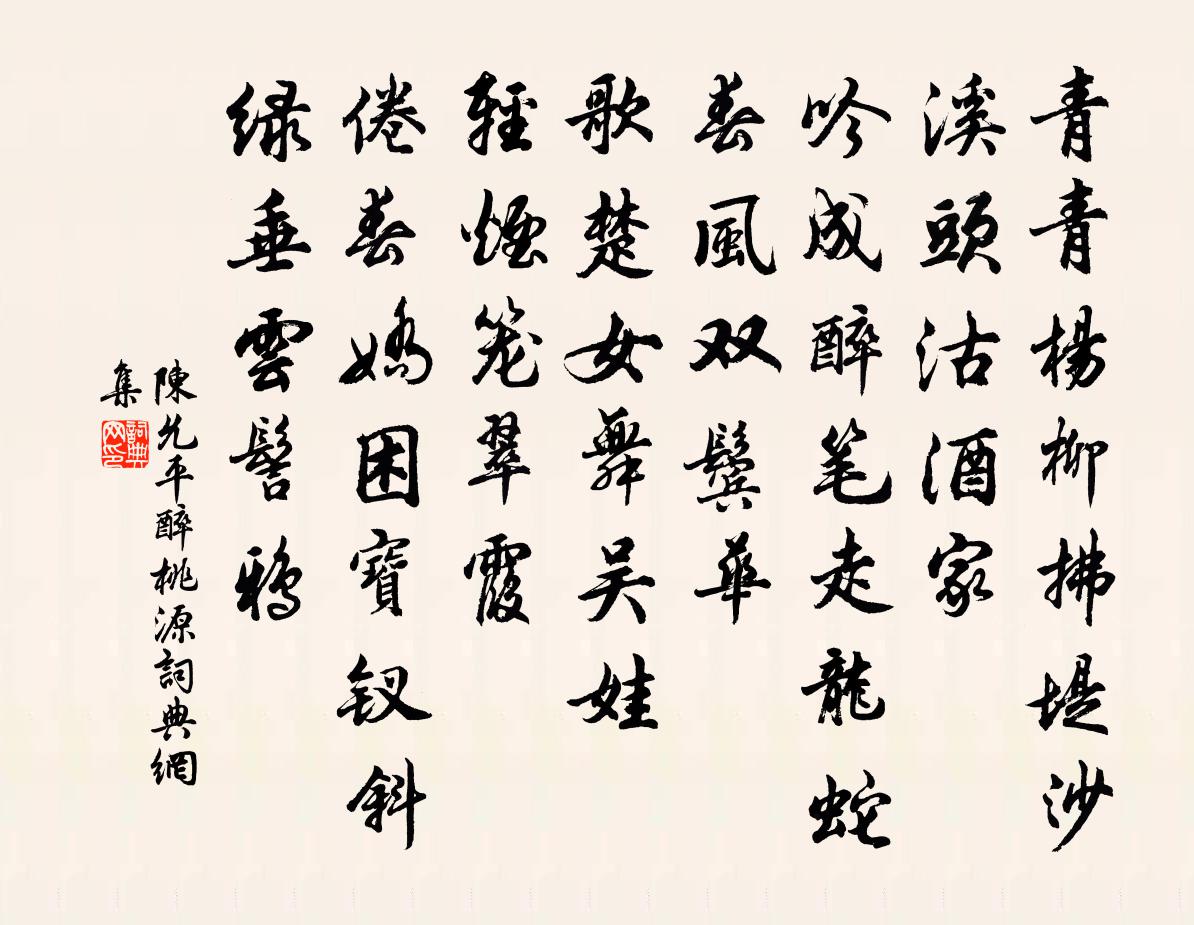 青青楊柳拂堤沙
溪頭沽酒家
吟成醉笔走龍蛇
春風双鬓華
歌楚女舞吴娃
輕煙笼翠霞
倦春嬌困寶钗斜
緑垂雲髻鴉
陳允平醉桃源詞典網
集
詞典網印